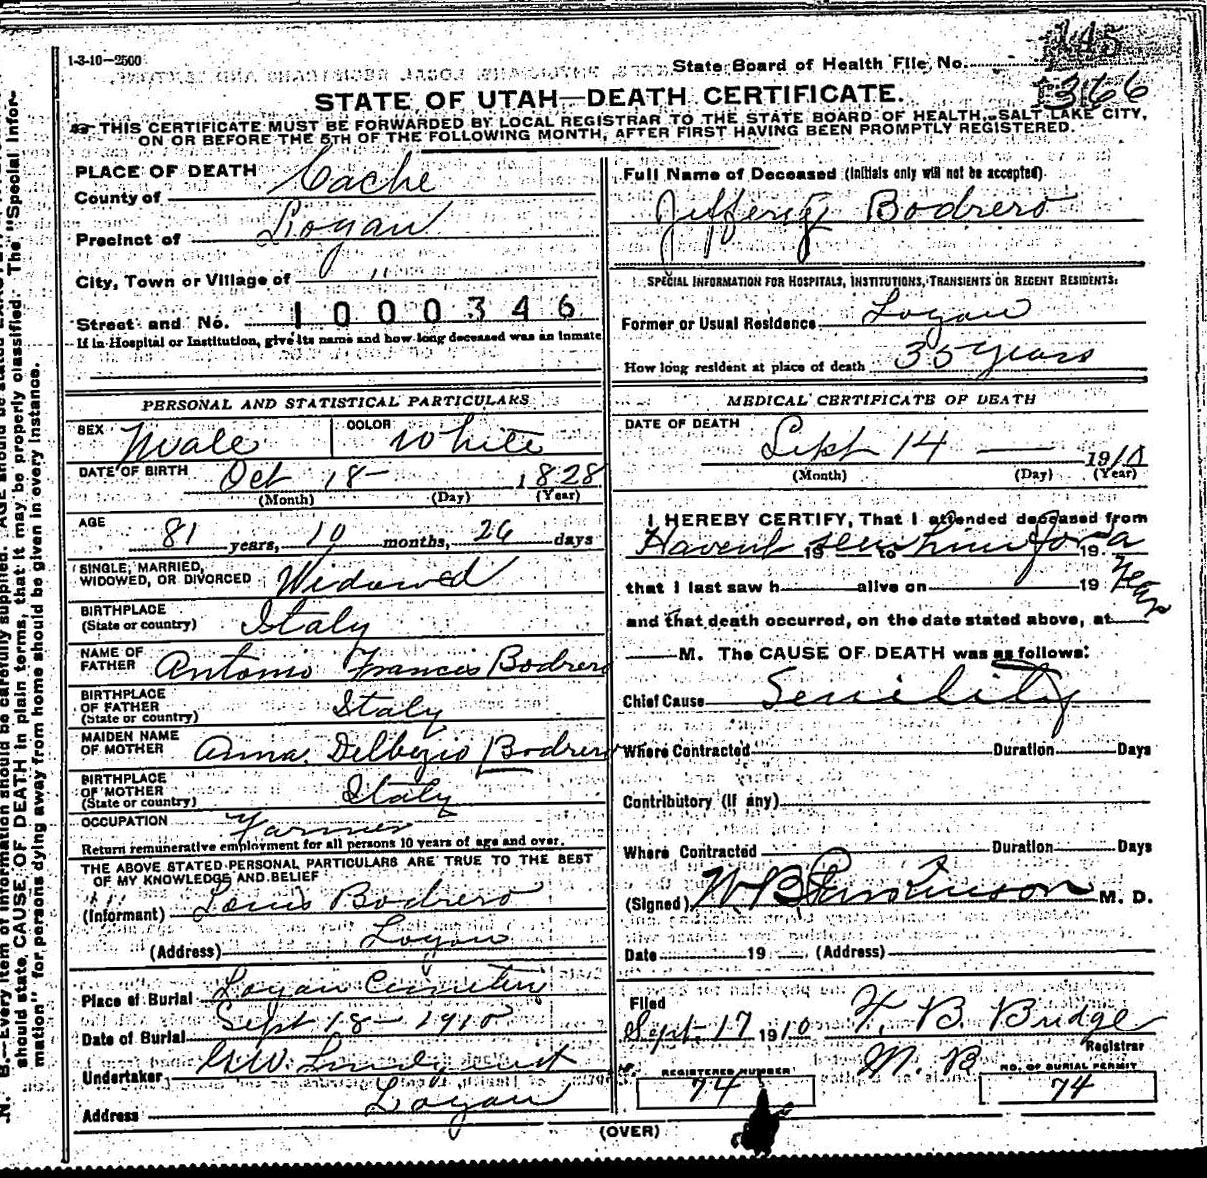 1-3-10-2500
State Board of Health File No.
145
366
STATE OF UTAH—DEATH CERTIFICATE.
THIS CERTIFICATE MUST BE FORWARDED BY LOCAL REGISTRAR TO THE STATE BOARD OF HEALTH, SALT LAKE CITY,
ON OR BEFORE THE 5TH OF THE FOLLOWING MONTH, AFTER FIRST HAVING BEEN PROMPTLY REGISTERED.
PLACE OF DEATH
County of Cache
Precinct of Logan
City, Town or Village of "
Street and No. 1000346
If in Hospital or Institution, give its name and how long deceased was an inmate
PERSONAL AND STATISTICAL PARTICULARS
SEX Male COLOR White
DATE OF BIRTH Oct 18- 1828
(Month) (Day) (Year)
AGE
81 years, 10 months, 26 days
SINGLE, MARRIED,
WIDOWED, OR DIVORCED Widowed
BIRTHPLACE
(State or country) Italy
NAME OF
FATHER Antonio Francis Bodrero
BIRTHPLACE
OF FATHER
(State or country) Italy
MAIDEN NAME
OF MOTHER Anna Bodrero
BIRTHPLACE
OF MOTHER
(State or country) Italy
OCCUPATION Farmer
Return remunerative employment for all persons 10 years of age and over.
THE ABOVE STATED PERSONAL PARTICULARS ARE TRUE TO THE BEST
OF MY KNOWLEDGE AND BELIEF
(Informant) Louis Bodrero
(Address) Logan
Place of Burial Logan Cemetery
Date of Burial Sept 18- 1910
Undertaker
Address Logan
Full Name of Deceased (Initials only will not be accepted)
Bodrero
SPECIAL INFORMATION FOR HOSPITALS, INSTITUTIONS, TRANSIENTS OR RECENT RESIDENTS:
Former or Usual Residence Logan
How long resident at place of death 35 years
MEDICAL CERTIFICATE OF DEATH
DATE OF DEATH
Sept 14 — 1910
(Month) (Day) (Year)
I HEREBY CERTIFY, That I attended deceased from
Havent seen him for a 19 to 19
that I last saw h alive on 19 year
and that death occurred, on the date stated above, at
M. The CAUSE OF DEATH was as follows:
Chief Cause Senility
Where Contracted Duration Days
Contributory (If any)
Where Contracted Duration Days
(Signed) W B M. D.
Date 19 (Address)
Filed
Sept. 17 1910 F. B. Bridge
Registrar
M. B
REGISTERED NUMBER
74
NO. OF BURIAL PERMIT
74
(OVER)
N. B.—Every item of information should be carefully supplied. AGE should be stated
should state CAUSE OF DEATH in plain terms, that it may be properly classified. The "Special Infor-
mation" for persons dying away from home should be given in every instance.